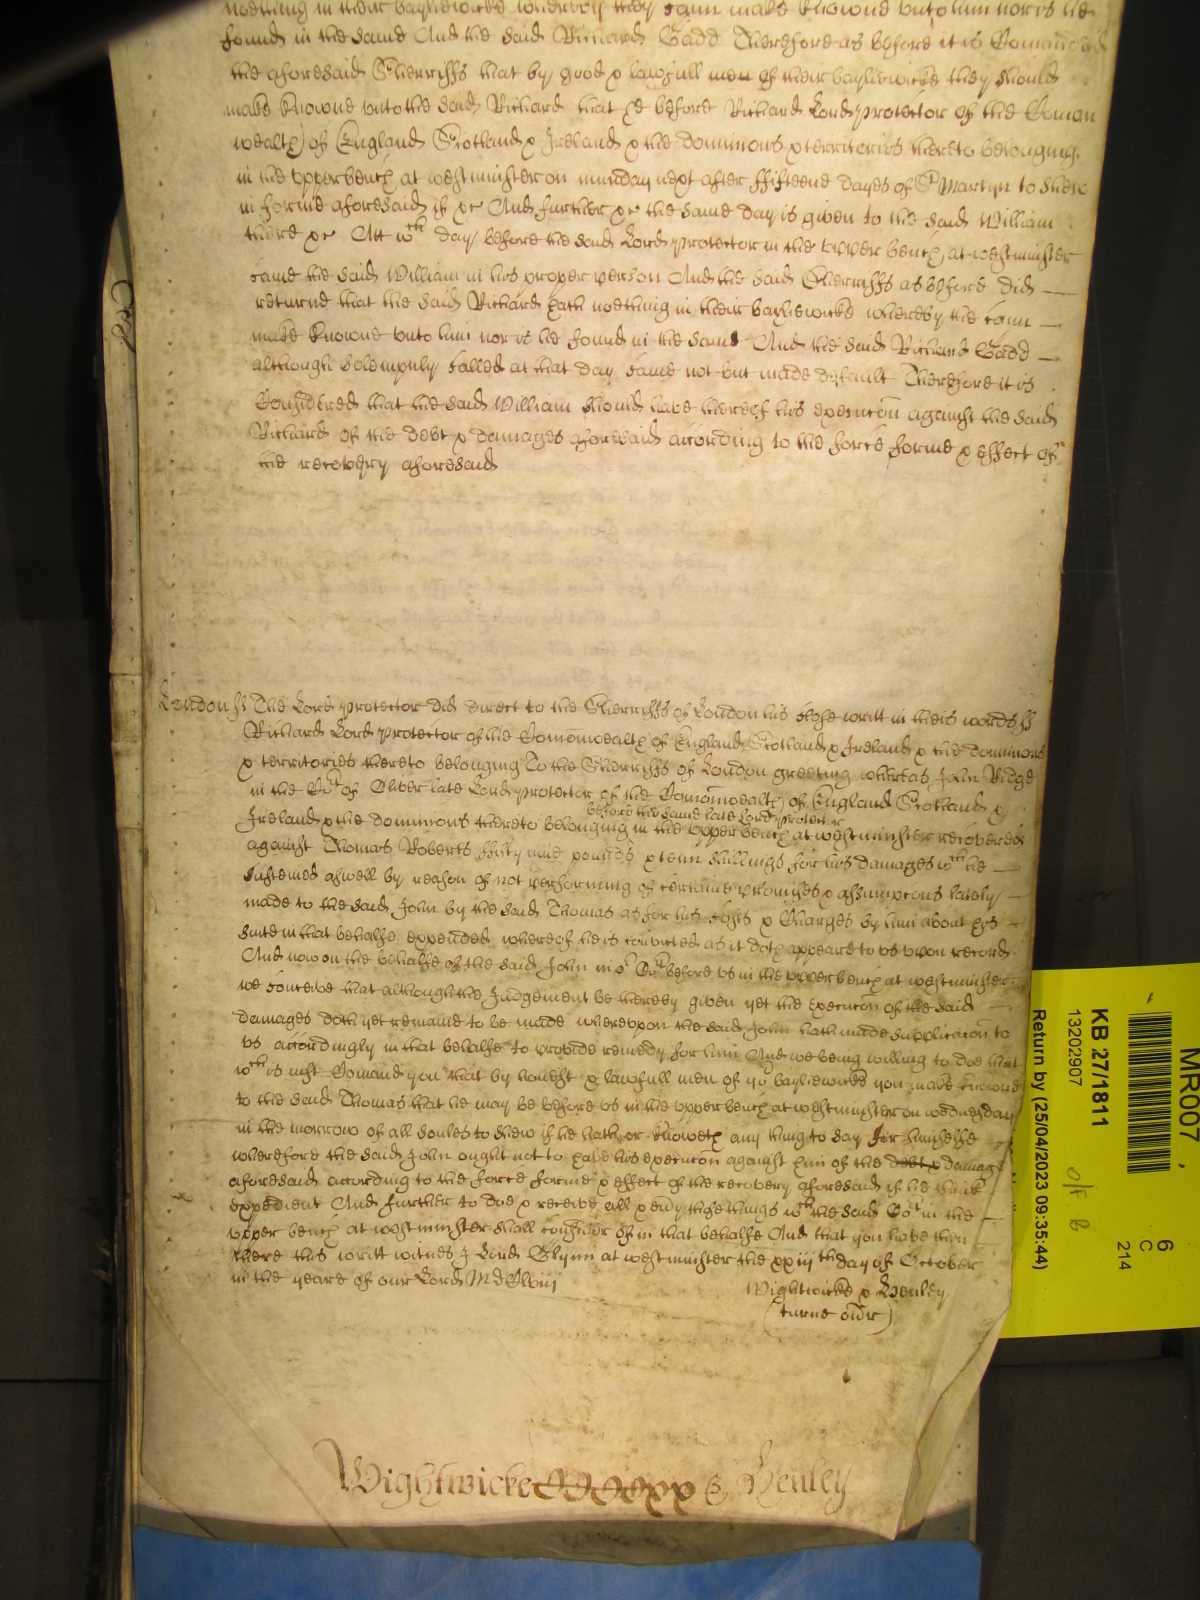 noething in their bayliewicke whereby they cann make knowne unto him nor is he
found in the same And the said Richard Gadd Therefore as before it is Comanded
the aforesaid Sherriffs that by good & lawfull men of their bayliewicke they should
make knowne unto the said Richard that he be before Richard Lord protector of the Comon
wealth of England Scotland & Ireland & the dominions & territories thereto belonging
in the upper bench at westminster on munday next after ffifteene dayes of St Martyn to shew
in forme aforesaid if &c And further &c the same day is given to the said William
there &c Att wch day before the said Lord protector in the upper bench at westminster
came the said William in his proper person And the said Sherriffs as before did
returne that the said Richard hath noething in their bayliewicke whereby the cann
make knowne unto him nor is he found in the same And the said Richard Gadd
although solempnly called at that day came not but made default Therefore it is
Considered that the said William should have thereof his execucon against the said
Richard of the debt & damages aforesaid according to the force forme & effect of
the recovery aforesaid
London ss The Lord protector did direct to the Sherriffs of London his close writt in theis words ss
Richard Lord protector of the Comonwealth of England Scotland & Ireland & the dominions
& territories thereto belonging To the Sherriffs of London greeting whereas John
in the Cort of Oliver late Lord protector of the Comonwealth of England Scotland &
before the same late Lord protector
Ireland & the dominions thereto belonging in the upper bench at westminster recovered
against Thomas Roberts ffifty nine pounds & tenn shillings for his damages wch he
susteined aswell by reason of not performing of certaine promises & assumpcons lately
made to the said John by the said Thomas as for his costs & Charges by him about his
suite in that behalfe expended whereof he is convicted as it doth appeare to us upon record
And now on the behalfe of the said John in or Cort before us in the upper bench at westminster
we conceive that although the Judgement be thereby given yet the execucon of the said
damages doth yet remaine to be made whereupon the said John hath made supplicacon to
us accordingly in that behalfe to provide remedy for him And we being willing to doe that
wch is just Comand you that by honest & lawfull men of yor bayliewicke you make knowne
to the said Thomas that he may be before us in the upper bench at westminster on wednesday
in the morrow of all Soules to shew if he hath or knoweth any thing to say for himselfe
wherefore the said John ought not to have his execucon against him of the debt & damages
aforesaid according to the force forme & effect of the recovery aforesaid if he think
expedient And further to doe & receive all & every those things wch the said Cort in the
upper bench at westminster shall consider of in that behalfe And that you have then
there this writt witnes J Lord Glynn at westminster the xxiiith day of October
in the yeare of our Lord MdClviii
Wightwicke & Henley
(turne over)
Wightwicke & Henley
MR007
6
C
214
KB 27/1811
13202907
Return by (25/04/2023 09:35:44)